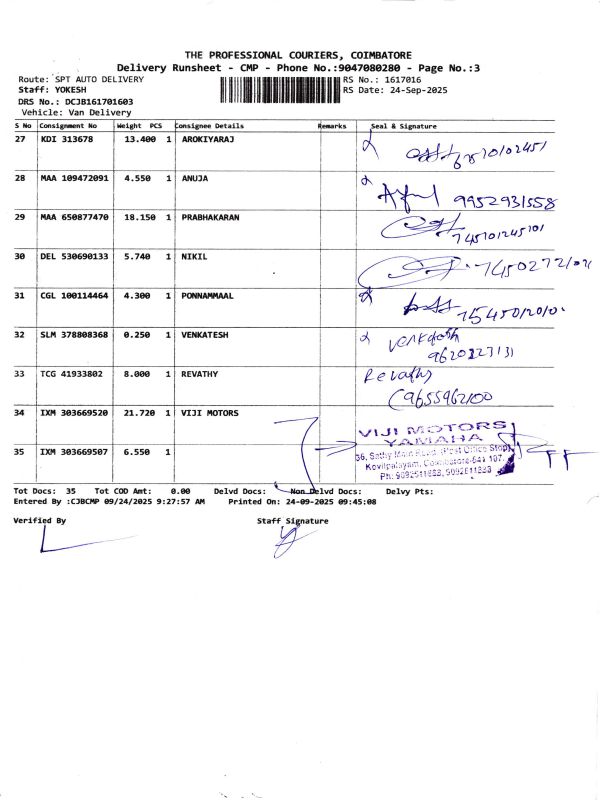 THE PROFESSIONAL COURIERS, COIMBATORE
Delivery Runsheet - CMP - Phone No.:9047080280 - Page No.:3
Route: SPT AUTO DELIVERY RS No.: 1617016
Staff: YOKESH RS Date: 24-Sep-2025
DRS No.: DCJB161701603
Vehicle: Van Delivery
S No Consignment No Weight PCS Consignee Details Remarks Seal & Signature
27 KDI 313678 13.400 1 AROKIYARAJ
28 MAA 109472091 4.550 1 ANUJA 9952931558
29 MAA 650877470 18.150 1 PRABHAKARAN
30 DEL 530690133 5.740 1 NIKIL
31 CGL 100114464 4.300 1 PONNAMMAAL
32 SLM 378808368 0.250 1 VENKATESH Venkatesh
33 TCG 41933802 8.000 1 REVATHY Revathy
9655962100
34 IXM 303669520 21.720 1 VIJI MOTORS
VIJI MOTORS
YAMAHA
36, Sathy Main Road, (Post Office Stop)
35 IXM 303669507 6.550 1 Kovilpalayam, Coimbatore-641 107.
Tot Docs: 35 Tot COD Amt: 0.00 Delvd Docs: Non Delvd Docs: Delvy Pts:
Entered By :CJBCMP 09/24/2025 9:27:57 AM Printed On: 24-09-2025 09:45:08
Verified By Staff Signature